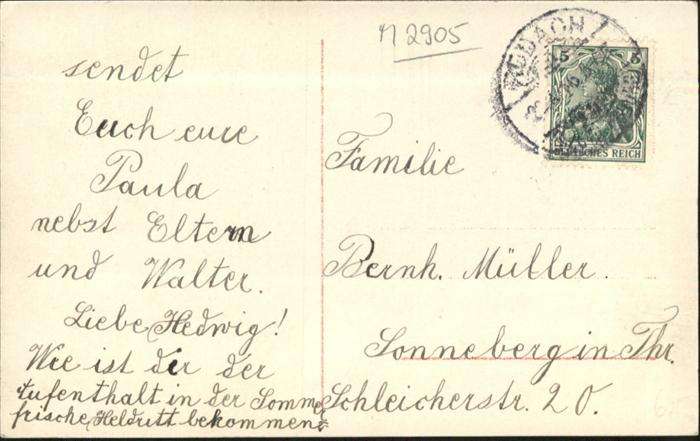 n 2905
RODACH
5 5
DEUTSCHES REICH
sendet
Euch eure
Paula
nebst Eltern
und Walter.
Liebe Hedwig!
Wie ist dir der
Aufenthalt in der Sommer
frische Heldritt bekommen?
Familie
Bernh. Müller.
Sonneberg in Thr.
Schleicherstr. 20.